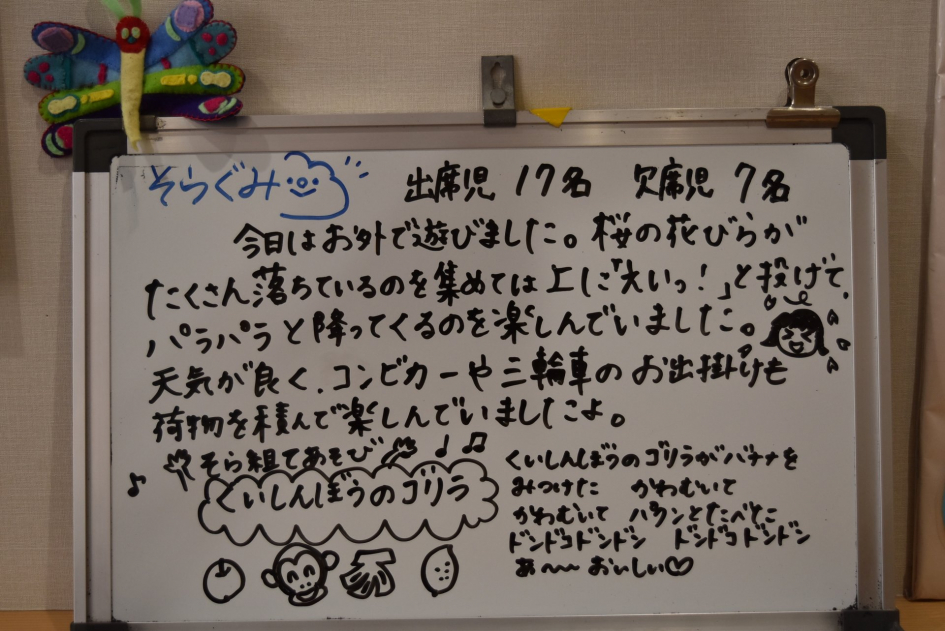 そらぐみ 出席児 17名 欠席児 7名
今日はお外で遊びました。桜の花びらが
たくさん落ちているのを集めては上に「えいっ!」と投げて、
パラパラと降ってくるのを楽しんでいました。
天気が良く、コンビカーや三輪車のお出掛けも
荷物を積んで楽しんでいましたよ。
そら組てあそび
くいしんぼうのゴリラ
くいしんぼうのゴリラがバナナを
みつけた かわむいて
かわむいて パクンとたべた
ドンドコドンドン ドンドコドンドン
あ〜〜おいしい♡